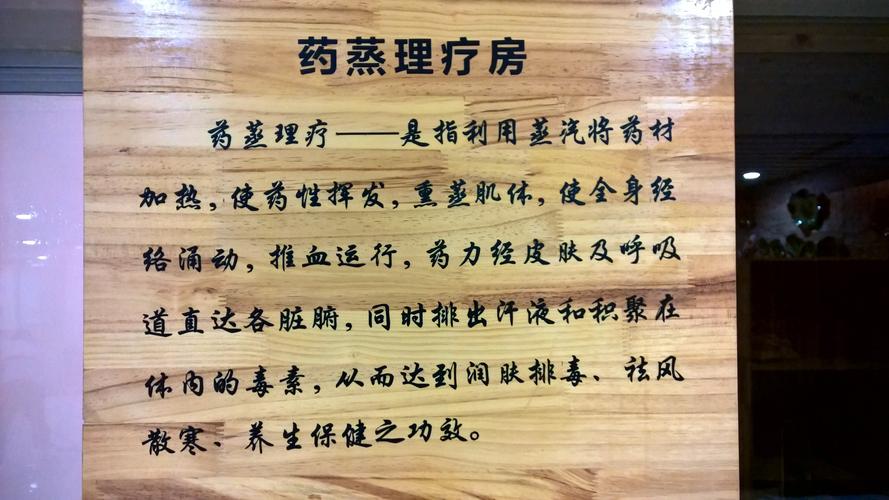 药蒸理疗房
药蒸理疗——是指利用蒸汽将药材
加热，使药性挥发，熏蒸肌体，使全身经
络涌动，推血运行，药力经皮肤及呼吸
道直达各脏腑，同时排出汗液和积聚在
体内的毒素，从而达到润肤排毒、祛风
散寒、养生保健之功效。